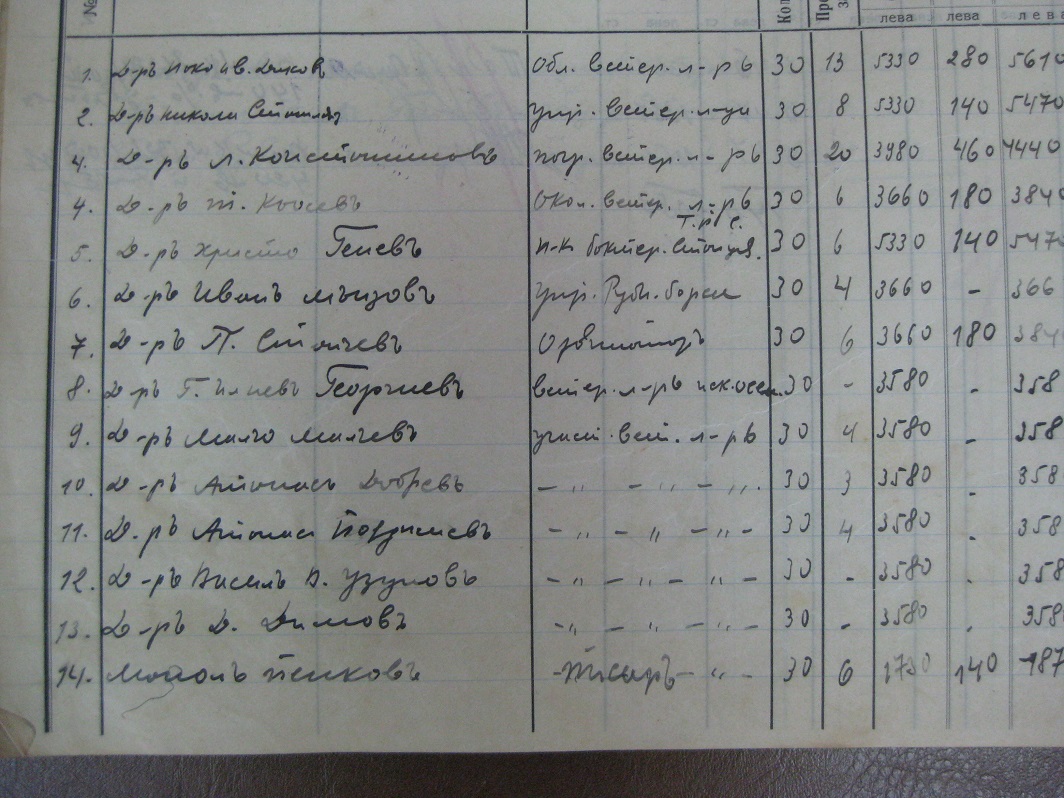 № Кол Пр з лева лева лева
1. Д-ръ Ив. 30 13 5330 280 5610
2. Д-ръ Никола 30 8 5330 140 5470
4. Д-ръ Л. Константиновъ погр. ветер. л-ръ 30 20 3980 460 4440
4. Д-ръ Т. Косевъ Окол. ветер. л-ръ 30 6 3660 180 384
5. Д-ръ Христо Геневъ п-к бактер. станция. 30 6 5330 140 547
6. Д-ръ Иванъ упр. 30 4 3660 - 366
7. Д-ръ П. Стойчевъ Ординаторъ 30 6 3660 180 384
8. Д-ръ Г. Илиевъ Георгиевъ ветер. л-ръ 30 - 3580 - 358
9. Д-ръ Милчо Милчевъ участ. вет. л-ръ 30 4 3580 - 358
10. Д-ръ Атанасъ Добревъ - " - " - ". 30 3 3580 - 358
11. Д-ръ Атанас - " - " - " - 30 4 3580 . 358
12. Д-ръ Василъ В. Узуновъ - " - " - " - 30 - 3580 . 358
13. Д-ръ Д. Димовъ - " - " - " - 30 - 3580 . 358
14. Пенковъ - Писаръ - " - 30 6 1730 140 187